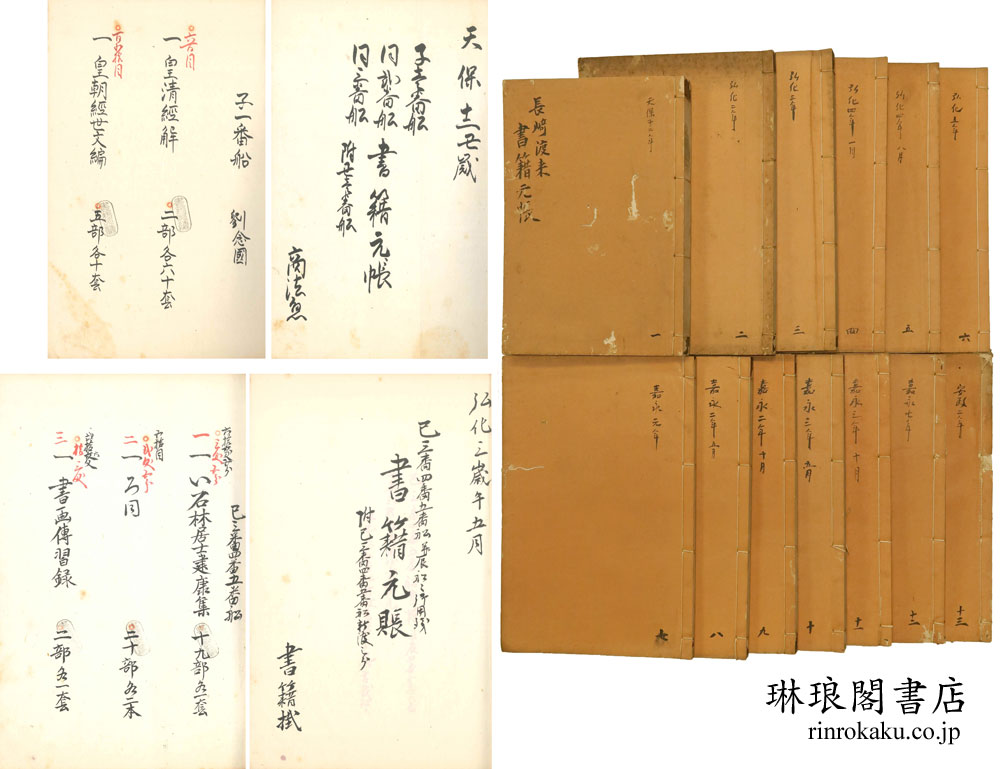 天保十二丑歳
子一番船
同弐番船 書籍元帳
同三番船
附丑二番船
商法惣
子一番船
劉念國
一 皇清經解 二部各六十套
一 皇朝經世文編 五部各十套
弘化三歳午五月
書籍元賬
書籍掛
巳三番四番五番船
一 い石林居士建康集 十九部各一套
二一 ろ同 三十部各二本
三一 書画傳習録 二部各一套
長崎渡来
書籍元帳
一
弘化二年
二
弘化三年
三
弘化四年 一月
四
弘化四年 八月
五
弘化五年
六
嘉永元年
七
嘉永二年
八
嘉永二年 十月
九
嘉永三年
十
嘉永三年 十月
十一
嘉永七年
十二
安政二年
十三
琳琅閣書店
rinrokaku.co.jp